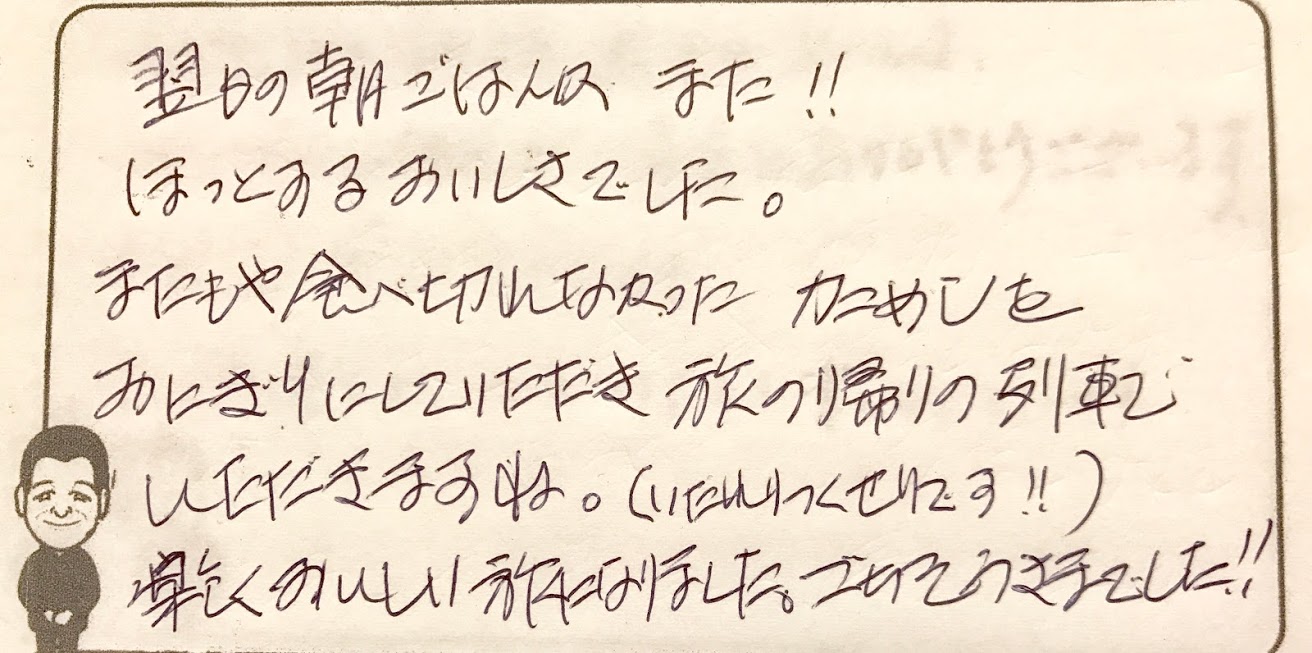 翌日の朝ごはんは また!!
ほっとするおいしさでした。
またもや食べ切れなかった カニめしを
おにぎりにしていただき 旅の帰りの列車で
いただきますね。(いたれりつくせりです!!)
楽しくおいしい旅になりました。ごちそうさまでした!!